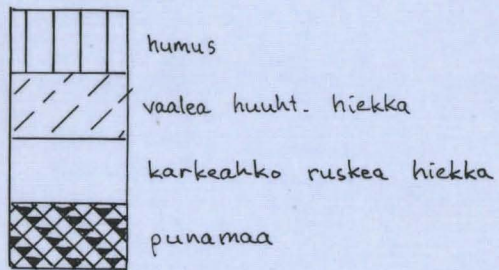 humus
vaalea huuht. hiekka
karkeahko ruskea hiekka
punamaa